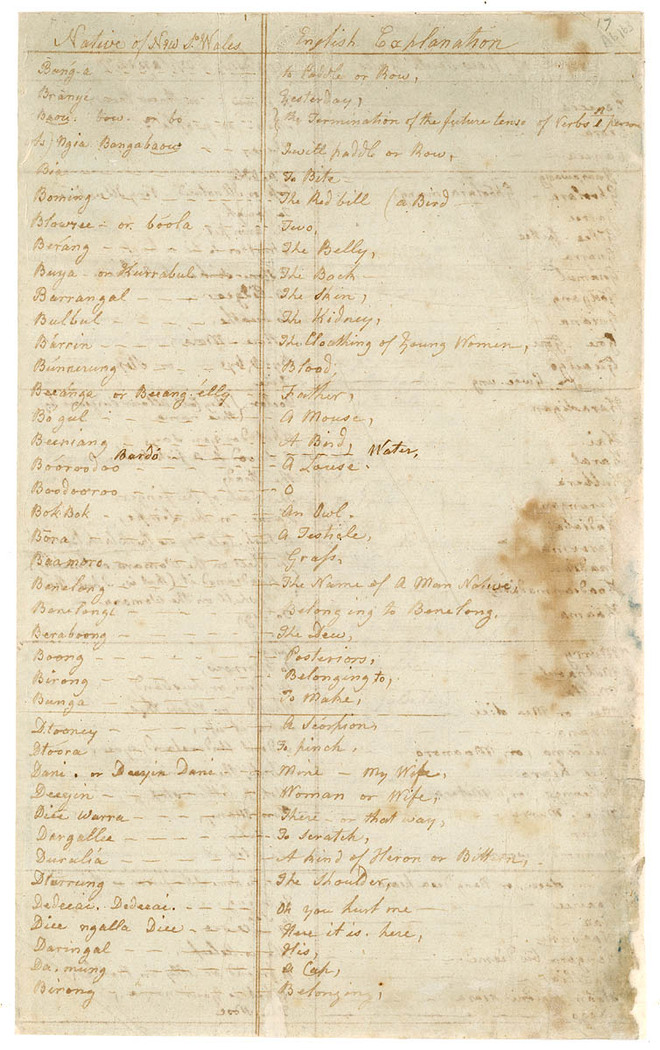 17
Native of New So. Wales English Explanation
Bang-a to Paddle or Row,
Branye Yesterday,
Baou. bow. or bo the Termination of the future tense of Verbs 1 person
As) Ngia Bangabaou I will paddle or Row,
To Bite
Boming The Redbill (a Bird
Blowree - or boola Two,
Beráng The Belly,
Buya - or Kurrabul The Back
Barrangal The Skin,
Bulbul The Kidney,
Bárrin The Cloathing of Young Women,
Búnnerung Blood,
Beeánga or Beeang-élly Father,
Bo gul A Mouse,
Beeniang A Bird,
Bardo Water,
Boóroodoo A Louse.
Boodooroo O
Bok Bok An Owl.
Bōra A Testicle,
Baamoro Grass,
Banelong The Name of A Man Native
Banelongi Belonging to Banelong.
Beraboong The Dew,
Boong Posteriors,
Birong Belonging to,
Bunga To Make,
Dtooney A Scorpion,
Dtoora To pinch,
Dani. or Deeyin Dani Mine - My Wife,
Deeyin Woman or Wife,
Diee Warra There - or that way,
Dargallie To Scratch,
Duralia A kind of Heron or Bittern,
Dtarrung The Shoulder,
Dedeeai. Dedeeai. Oh you hurt me
Diee ngalla Diee Here it is. here,
Daringal His,
Da. mung A Cap,
Birong Belonging,